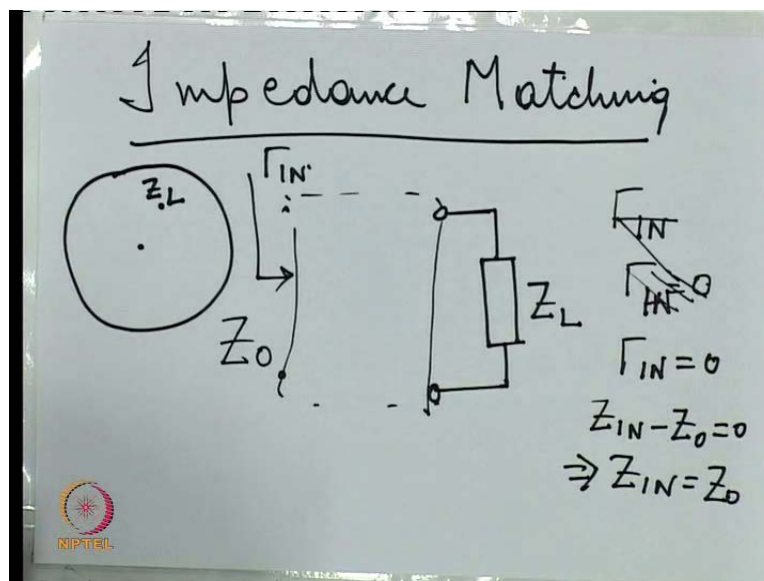 Impedance Matching
Z.L
Γ IN
Z0
ZL
Γ IN
Γ IN 0
Γ IN = 0
Z IN - Z0 = 0
⇒ Z IN = Z0
NPTEL